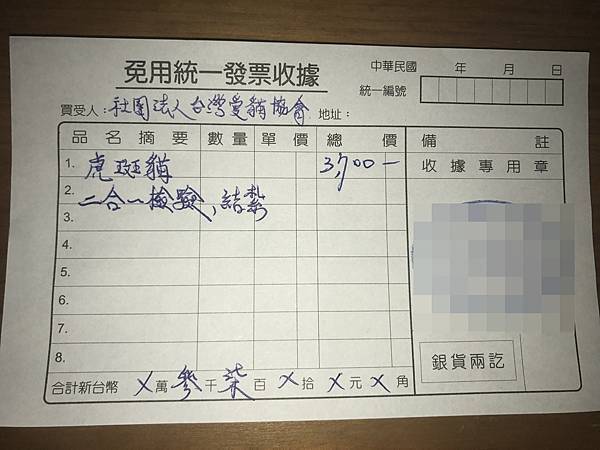 免用統一發票收據
中華民國 年 月 日
統一編號
買受人:社團法人台灣愛貓協會 地址:
品名摘要 數量 單價 總價 備註
1. 虎斑貓 3,700一 收據專用章
2. 二合一檢驗,結紮
3.
4.
5.
6.
7.
8.
銀貨兩訖
合計新台幣 X萬參千柒百X拾X元X角